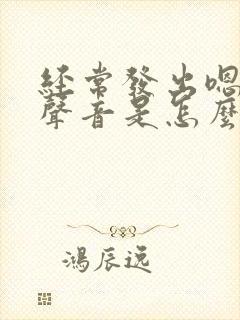 經常發出嗯
聲音是怎麼
鴻辰逸